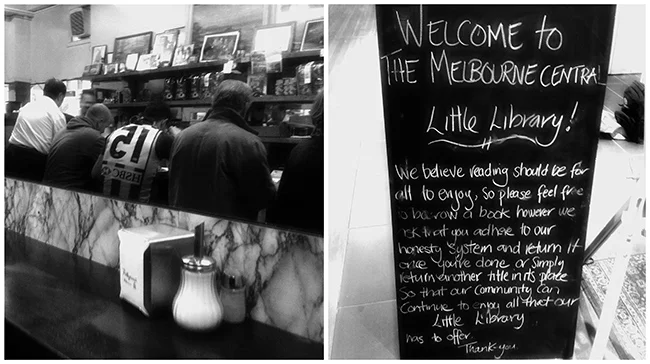 15
HSBC
WELCOME to
THE MELBOURNE CENTRAL
Little Library!
We believe reading should be for
all to enjoy, so please feel free
to borrow a book however we
ask that you adhere to our
honesty system and return it
once you've done or simply
return another title in its place
so that our community can
continue to enjoy all that our
Little Library
has to offer.
Thank-you.